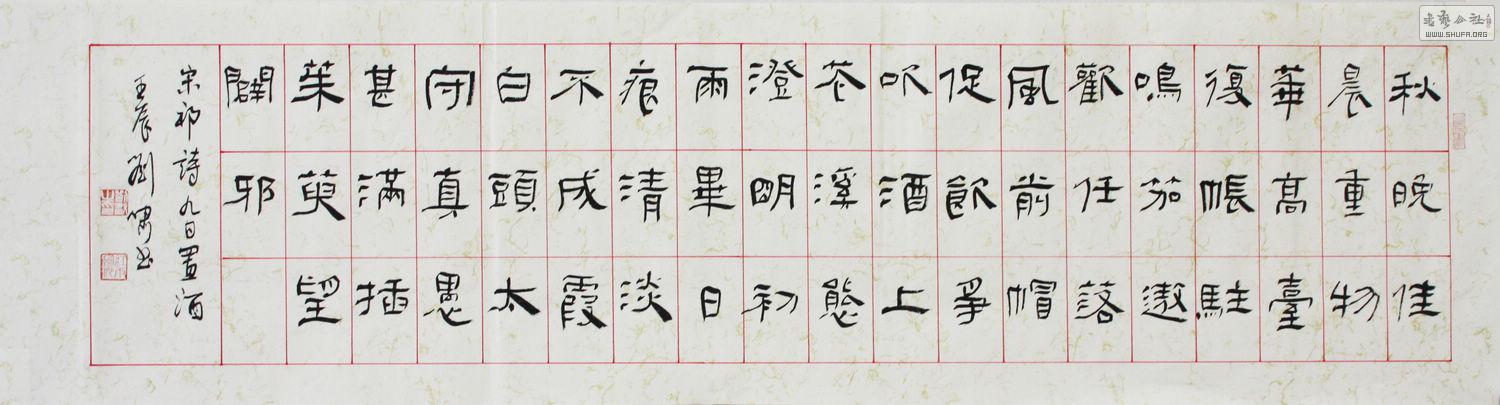 秋晚佳
晨重物
華高臺
復帳駐
鳴笳遨
歡任落
風前帽
促飲爭
吹酒上
花溪態
澄明初
雨畢日
痕清淡
不成霞
白頭太
守真愚
甚滿插
茱萸望
闢邪
宋祁詩九日置酒
壬辰劉書
書藝公社
WWW.SHUFA.ORG